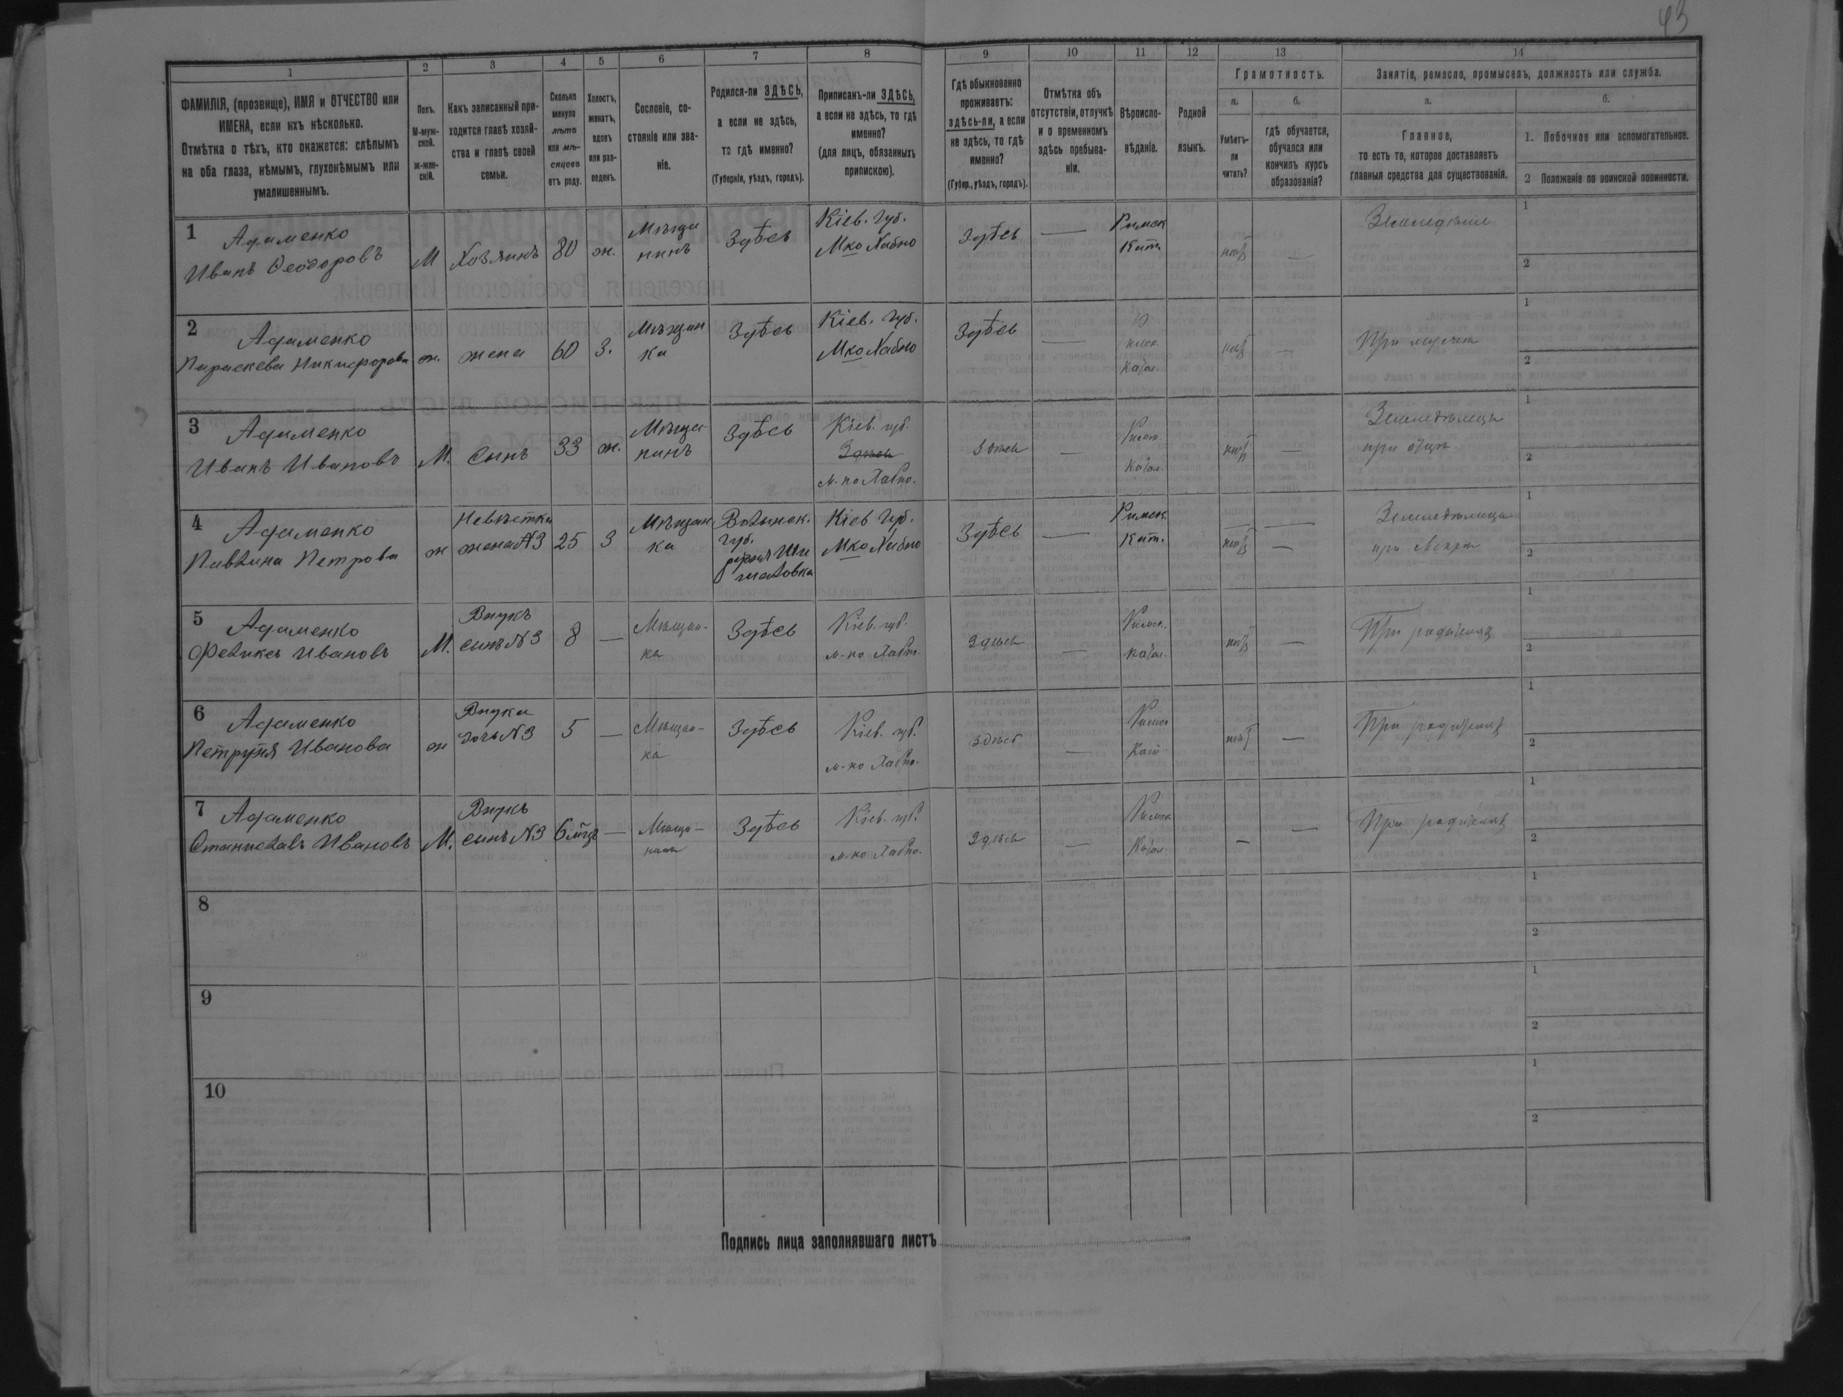 43
1 2 3 4 5 6 7 8 9 10 11 12 13 14
ФАМИЛІЯ, (прозвище), ИМЯ и ОТЧЕСТВО или
ИМЕНА, если ихъ нѣсколько.
Отмѣтка о тѣхъ, кто окажется: слѣпымъ
на оба глаза, нѣмымъ, глухонѣмымъ или
умалишеннымъ.
Полъ.
М-муж-
ской.
ж-жен-
скій.
Какъ записанный при-
ходится главѣ хозяй-
ства и главѣ своей
семьи.
Сколько
минуло
лѣтъ
или мѣ-
сяцевъ
отъ роду.
Холостъ,
женатъ,
вдовъ
или раз-
веденъ.
Сословіе, со-
стояніе или зва-
ніе.
Родился-ли ЗДѢСЬ,
а если не здѣсь,
то гдѣ именно?
(Губернія, уѣздъ, городъ).
Приписанъ-ли ЗДѢСЬ,
а если не здѣсь, то гдѣ
именно?
(для лицъ, обязанныхъ
припискою).
Гдѣ обыкновенно
проживаетъ:
здѣсь-ли, а если
не здѣсь, то гдѣ
именно?
(Губер., уѣздъ, городъ).
Отмѣтка объ
отсутствіи, отлучкѣ
и о временномъ
здѣсь пребыва-
ніи.
Вѣроиспо-
вѣданіе.
Родной
языкъ.
Грамотность.
а.
Умѣетъ-
ли
читать?
б.
гдѣ обучается,
обучался или
кончилъ курсъ
образованія?
Занятіе, ремесло, промыселъ, должность или служба.
а.
Главное,
то есть то, которое доставляетъ
главныя средства для существованія.
б.
1. Побочное или вспомогательное.
2 Положеніе по воинской повинности.
1 Адаменко
Иванъ Ѳеодоровъ
М
Хозяинъ
80
ж.
Мѣща
нинъ
Здѣсь
Кіев. Губ.
Мко Хабно
Здѣсь
—
Римск
Кат.
нѣтъ
—
Земледѣліе
1
2
2 Адаменко
Параскева Никифорова
ж.
жена
60
З.
Мѣщан
ка
Здѣсь
Кіев. Губ.
Мко Хабно
Здѣсь
—
Катол.
нѣтъ
—
При мужѣ
1
2
3 Адаменко
Иванъ Ивановъ
М.
Сынъ
33
ж.
Мѣща
нинъ
Здѣсь
Кіев. губ.
Здѣсь
м-ко Хабно.
Здѣсь
—
Римск.
Катол.
нѣтъ
—
Земледѣлецъ
при отцѣ
1
2
4 Адаменко
Павлина Петрова
ж
Невѣстка
жена N3
25
З
Мѣщан
ка
Волынск.
губ.
Кіев Губ.
Мко Хабно
Здѣсь
—
Римск.
Кат.
нѣтъ
—
1
2
5 Адаменко
Феликсъ Ивановъ
М.
Внукъ
сынъ N3
8
—
Здѣсь
Кіев. губ.
м-ко Хабно.
Здѣсь
—
Римск.
Катол.
нѣтъ
—
При родителяхъ
1
2
6 Адаменко
Петруня Иванова
ж
Внука
дочь N3
5
—
Мѣщан-
ка
Здѣсь
Кіев. губ.
м-ко Хабно.
Здѣсь
—
Римск
Катол
нѣтъ
—
При родителяхъ
1
2
7 Адаменко
Станиславъ Ивановъ
М.
Внукъ
сынъ N3
6 мцъ
—
Здѣсь
Кіев. губ.
м-ко Хабно.
Здѣсь
—
Римск
Катол.
—
—
При родителяхъ
1
2
8
1
2
9
1
2
10
1
2
Подпись лица заполнявшаго листъ